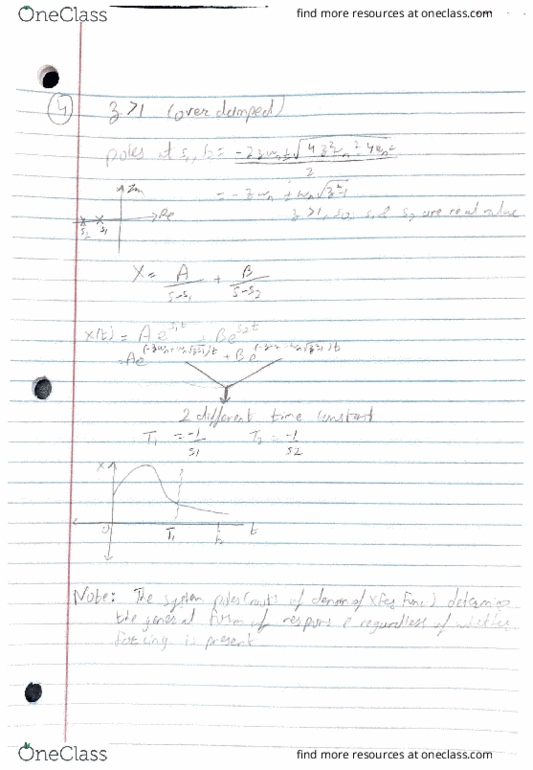 OneClass
find more resources at oneclass.com
④ ζ>1 (over damped)
poles at s₁,₂ = (-2ζωₙ ± √(4ζ²ωₙ² - 4ωₙ²)) / 2
= -ζωₙ ± ωₙ√(ζ²-1)
Im
Re
s₂ s₁
ζ>1, so, s₁ & s₂ are real value
X = A/(s-s₁) + B/(s-s₂)
x(t) = Ae^(s₁t) + Be^(s₂t)
= Ae^((-ζωₙ+ωₙ√(ζ²-1))t) + Be^((-ζωₙ-ωₙ√(ζ²-1))t)
2 different time constant
T₁ = -1/s₁ T₂ = -1/s₂
x
0 T₁ t₂ t
Note: The system poles (roots of denom of Xfer Func) determine
the general form of response regardless of whether
forcing is present
OneClass
find more resources at oneclass.com